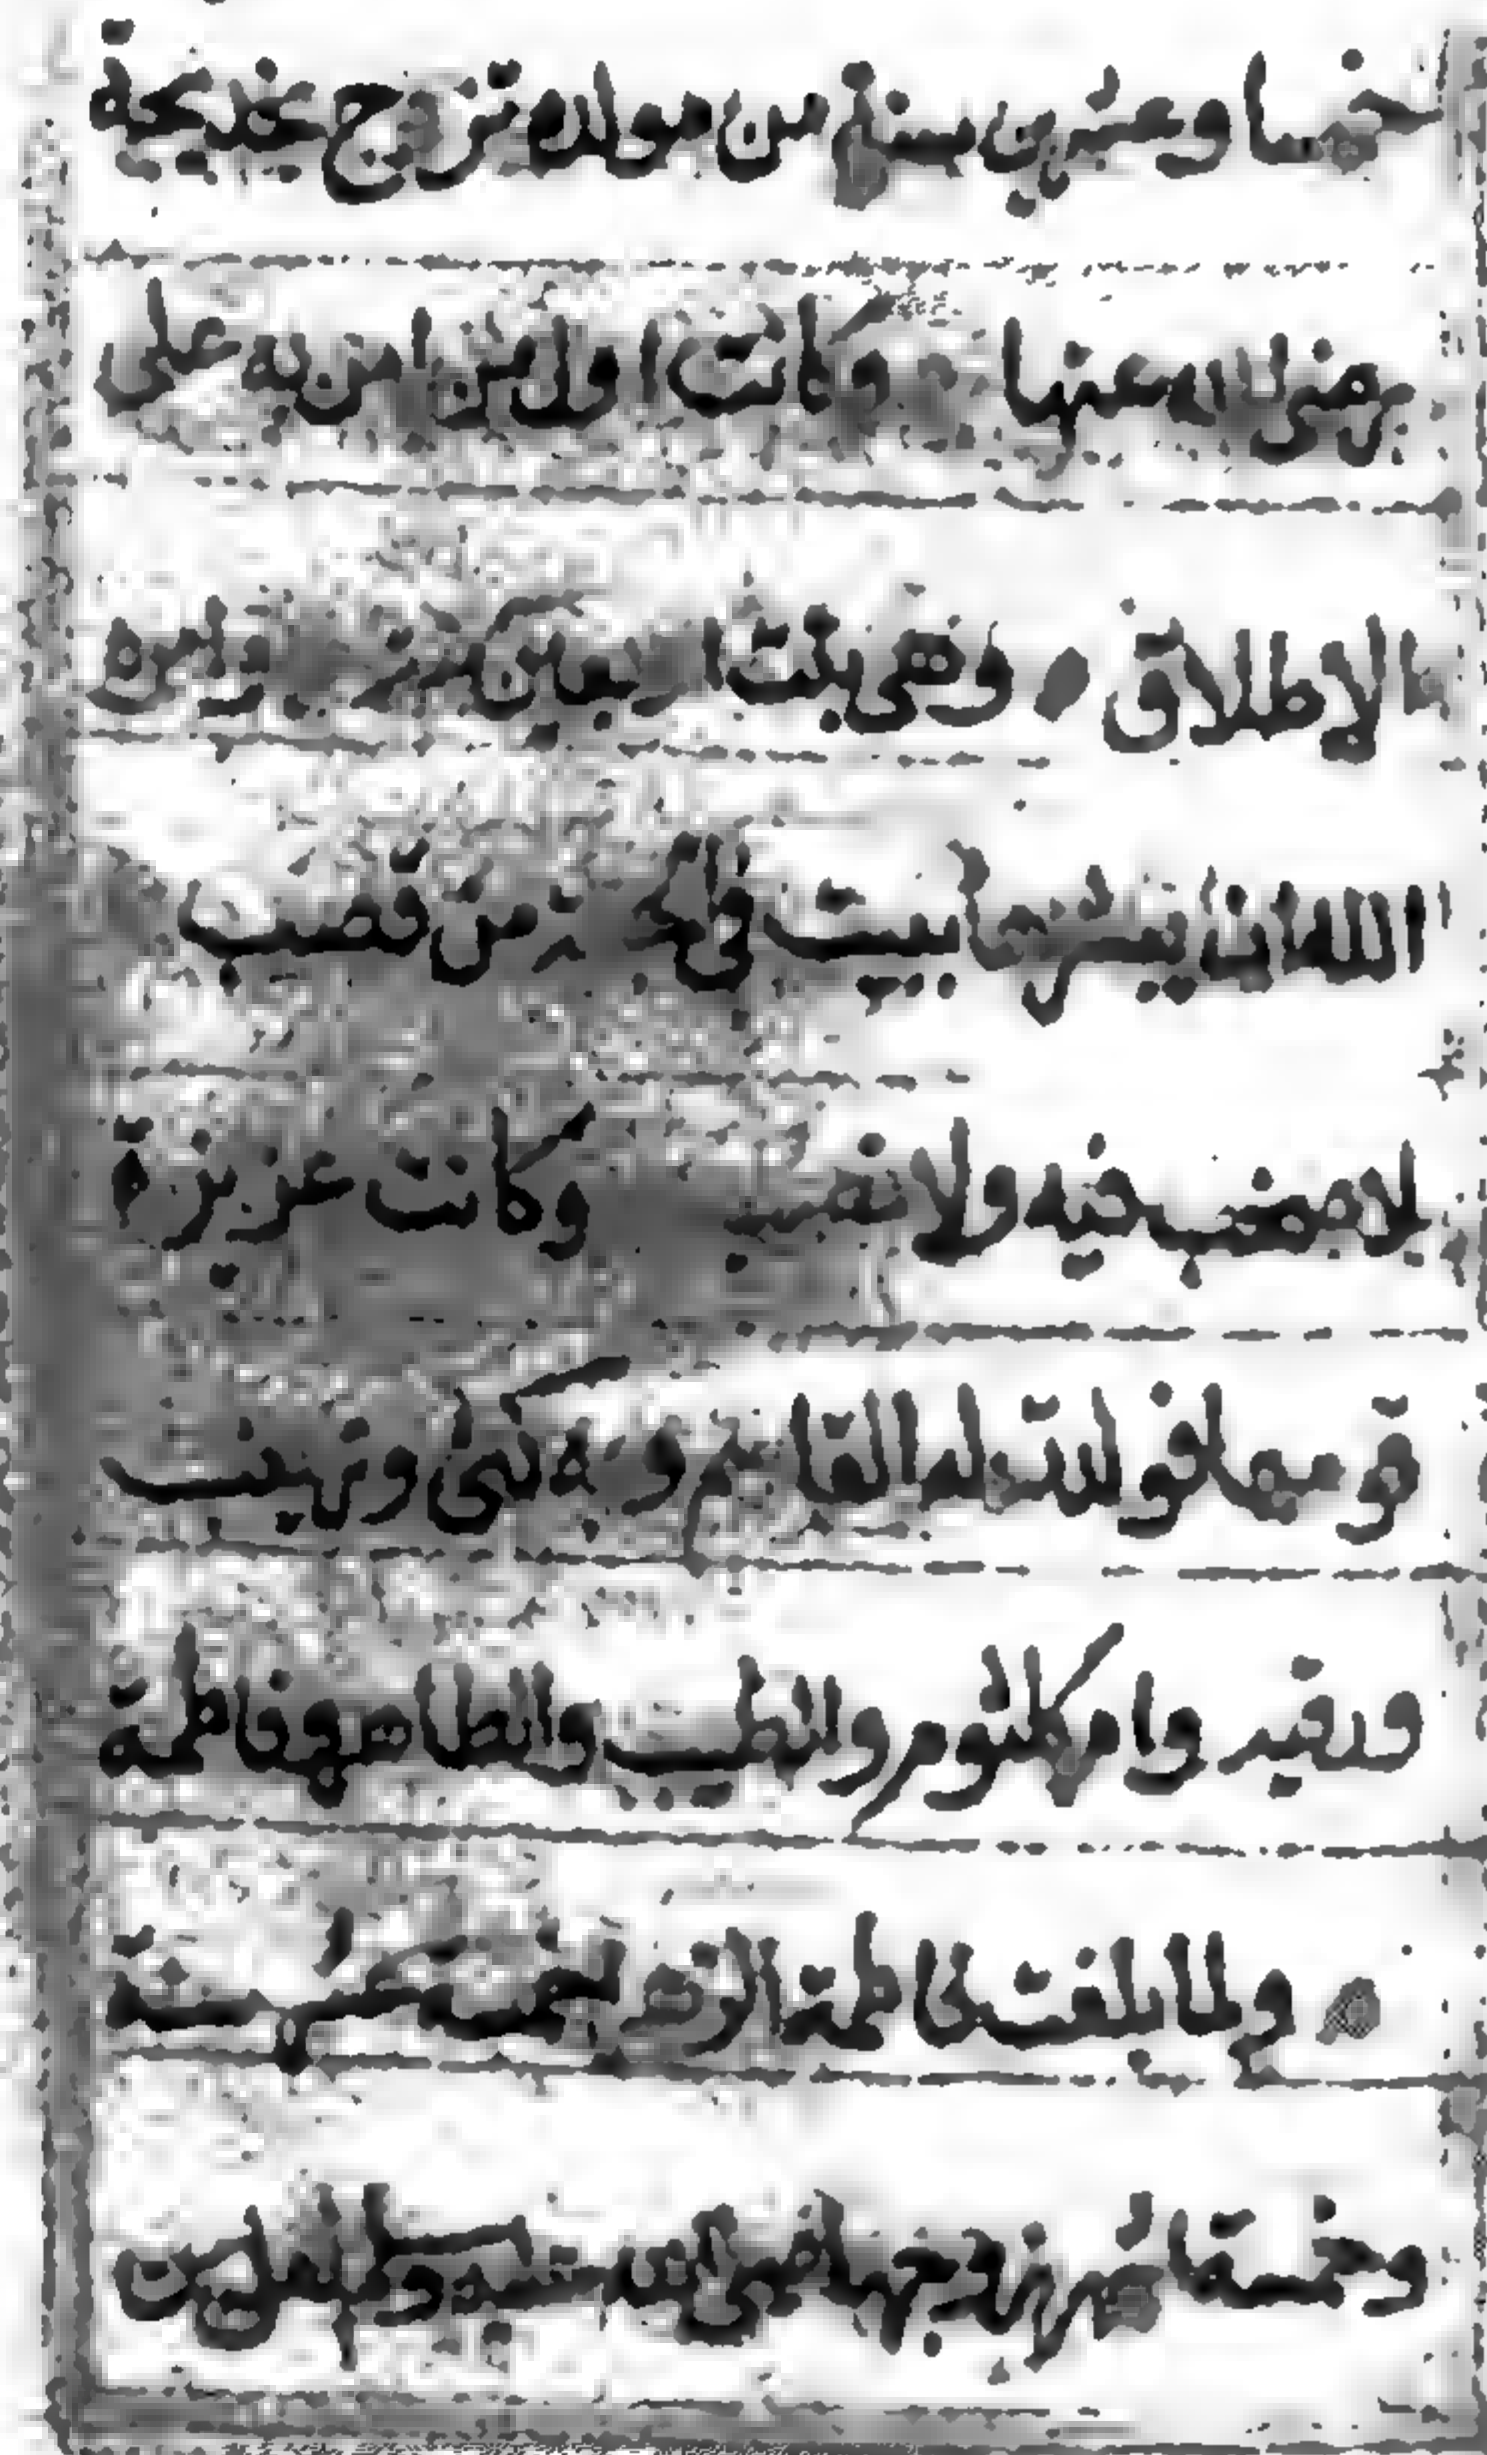 خمسا وعشرين سنة من مولده تزوج بخديجة
رضي الله عنها وكانت اول من امن به على
الاطلاق وهي بنت اربعين سنة وامره
الله ان يبشرها ببيت في الجنة من قصب
لا صخب فيه ولا نصب وكانت عزيزة
قومها فولدت له القاسم وبه كني وزينب
ورقية وام كلثوم والطيب والطاهر وفاطمة
ولما بلغت فاطمة الزهرا خمسة عشر سنة
وخمسة اشهر زوجها